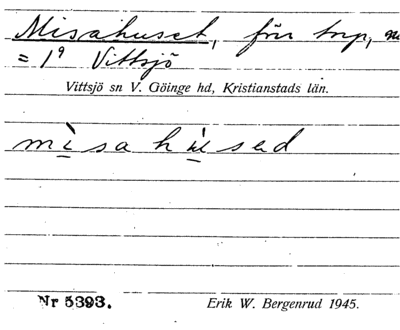 Misahuset, förr torp, nu
= 1⁹ Vittsjö
Vittsjö sn V. Göinge hd, Kristianstads län.
mìsa hùsəd
Nr 5393.
Erik W. Bergenrud 1945.